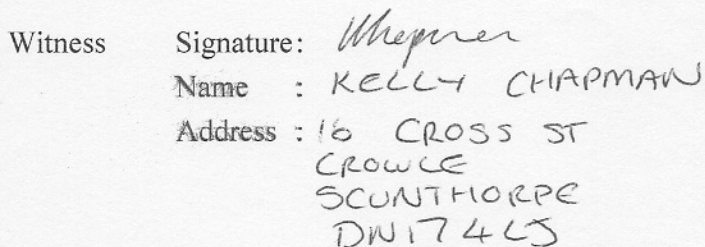 Witness Signature:
Name : KELLY CHAPMAN
Address : 16 CROSS ST
CROWLE
SCUNTHORPE
DN17 4LJ